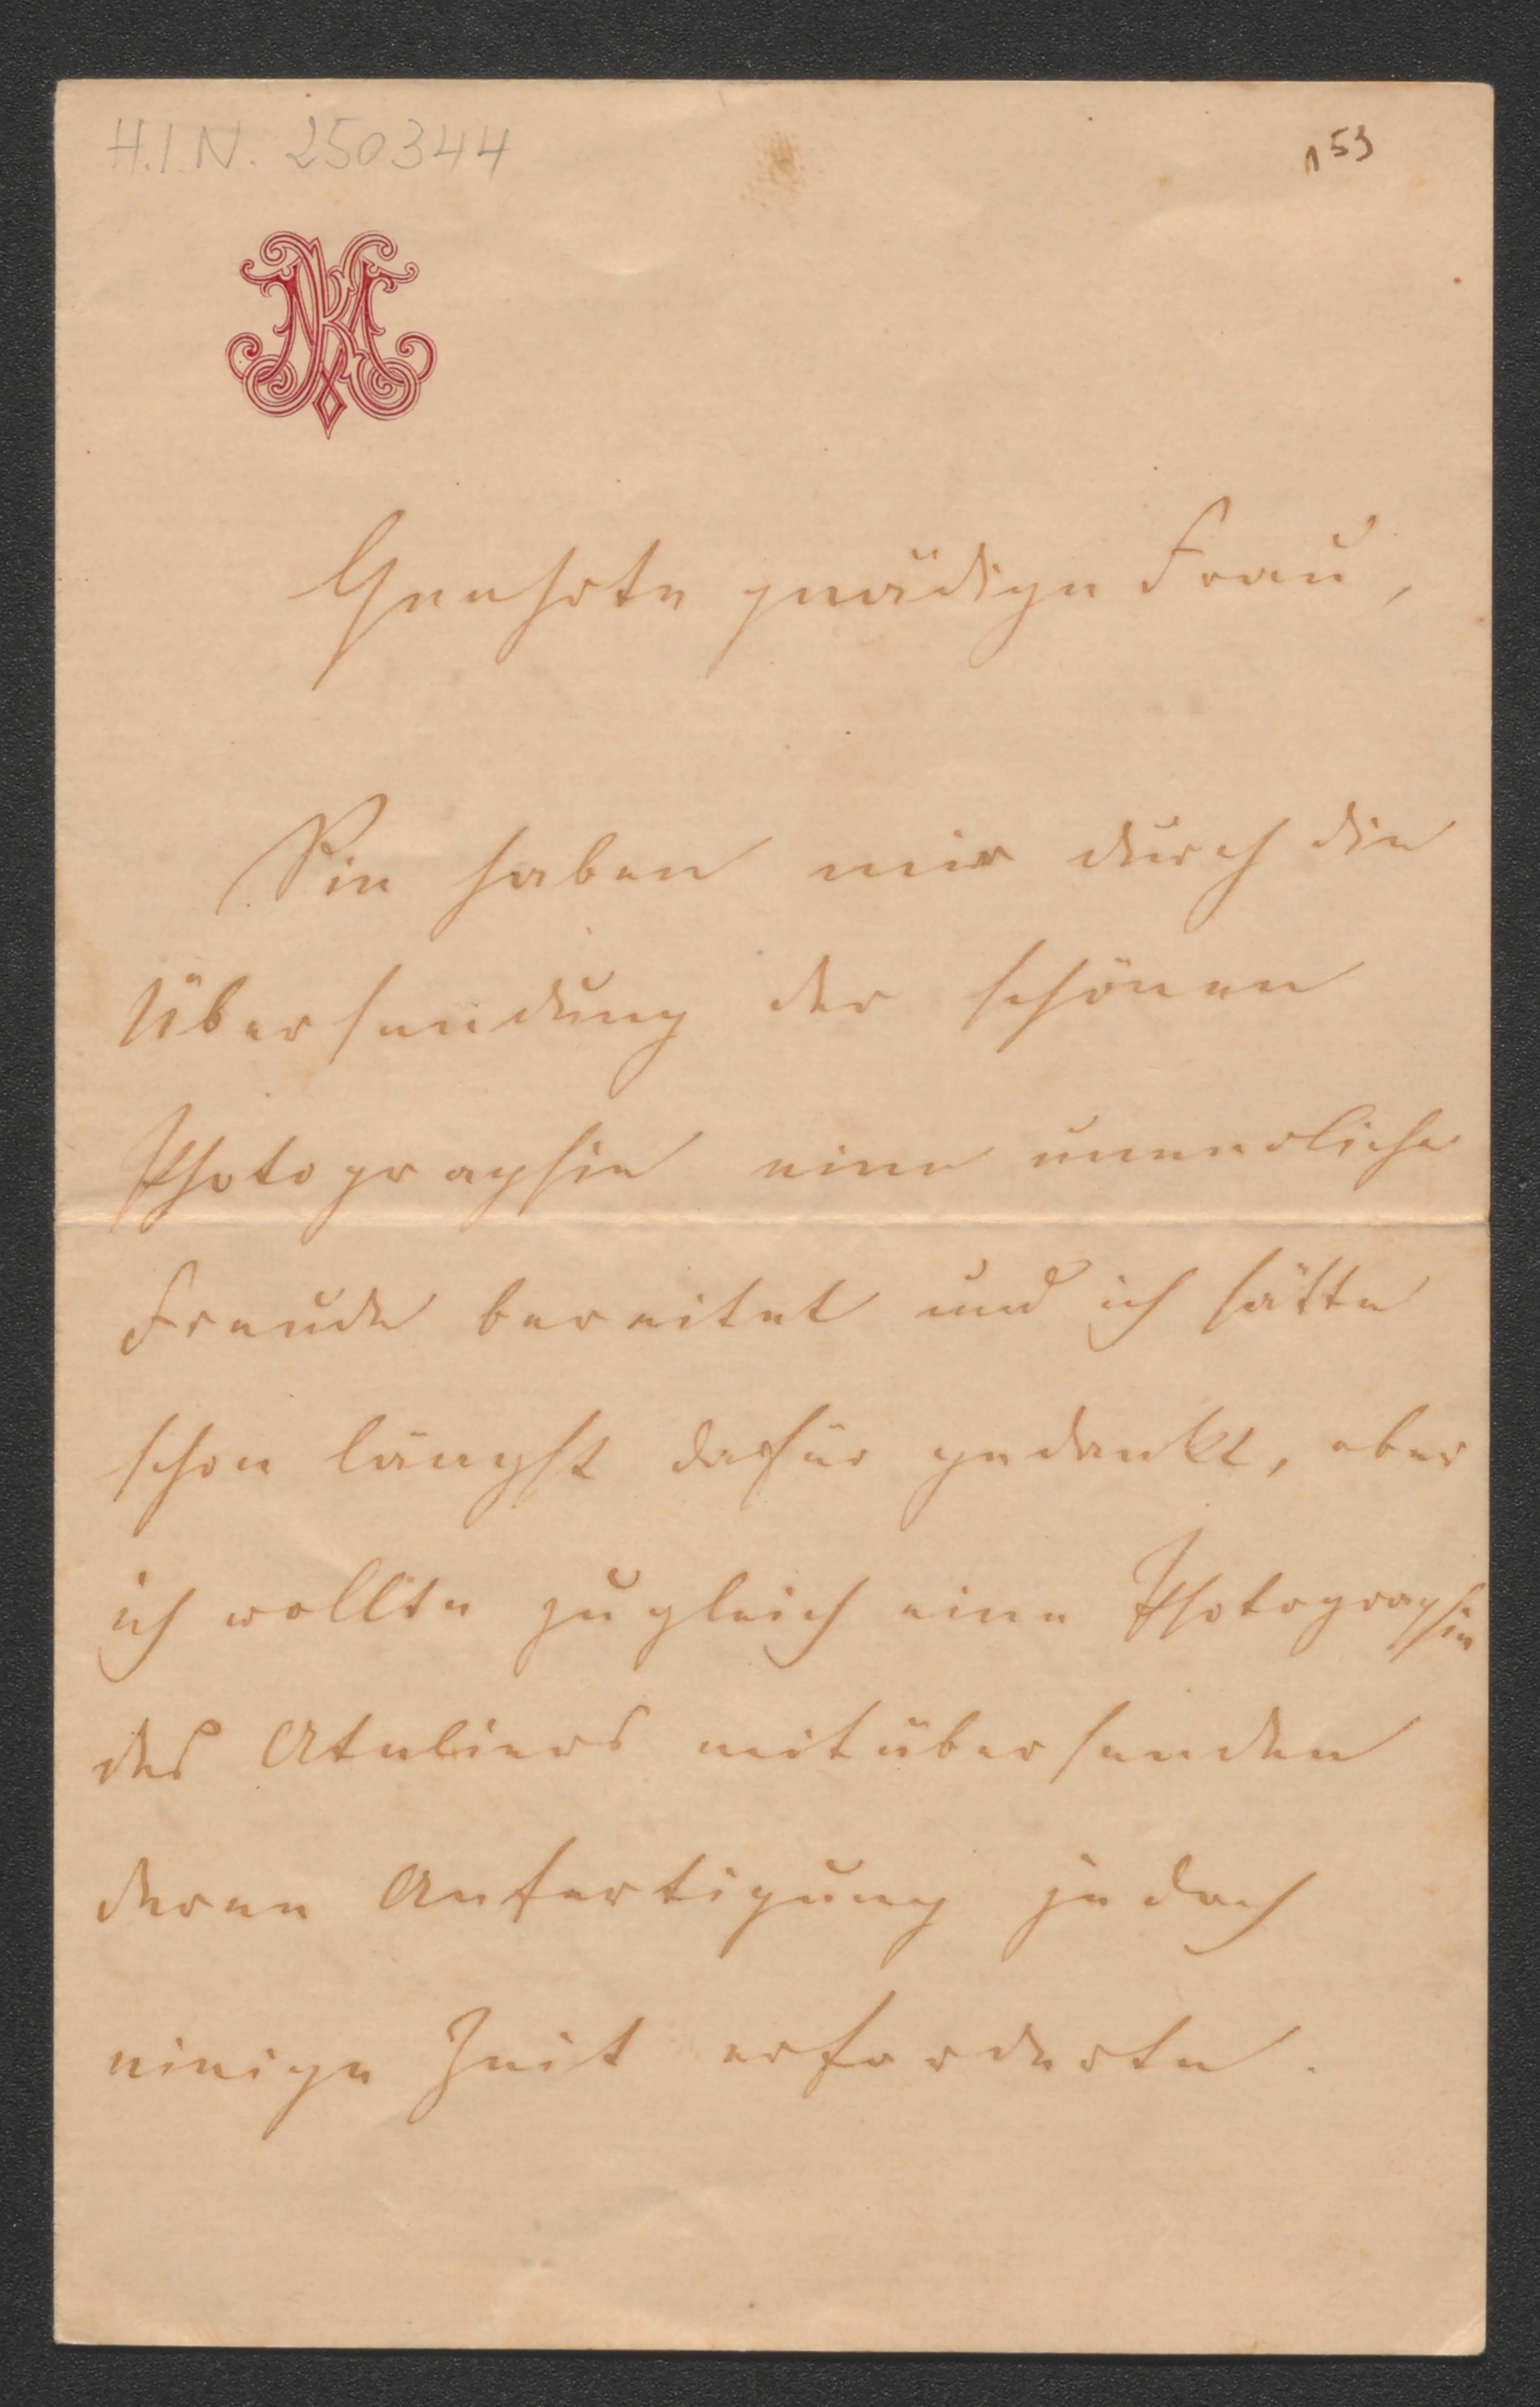 H.I.N. 250344
153
Geehrte gnädige Frau,
Sie haben mir durch die
Übersendung der schönen
Photographie eine unendliche
Freude bereitet und ich hätte
schon längst dafür gedankt, aber
ich wollte zugleich eine Photographie
des Ateliers mitübersenden
deren Anfertigung jedoch
einige Zeit erforderte.